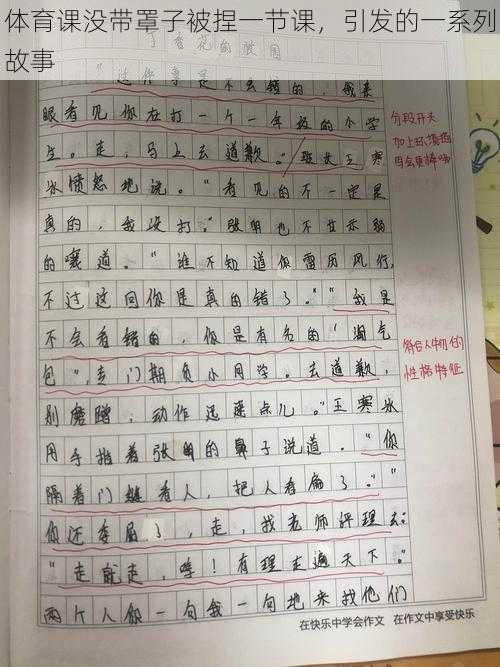 体育课没带罩子被捏一节课，引发的一系列
故事
丁香花的校园
“这件事是不会错的，我亲
眼看见你在打一个一年级的小学
生。走，马上去道歉。”班长王寒
冰愤怒地说。“看见的不一定是
真的，我没打。”张明也不甘示弱
的嚷道。“谁不知道你雷历风行，
不过这回你是真的错了。”“我是
不会看错的，你是有名的‘淘气
包’，专门期负小同学。去道歉，
别磨蹭，动作迅速点儿。”王寒冰
用手指着张明的鼻子说道。“你
隔着门缝看人，把人看偏了。”“
你还委屈了，走，找老师评理去。
“走就走，哼！有理走遍天下。”
两个人你一句我一句地来找他们
分段开头
加上环境描
性格特征
在快乐中学会作文 在作文中享受快乐